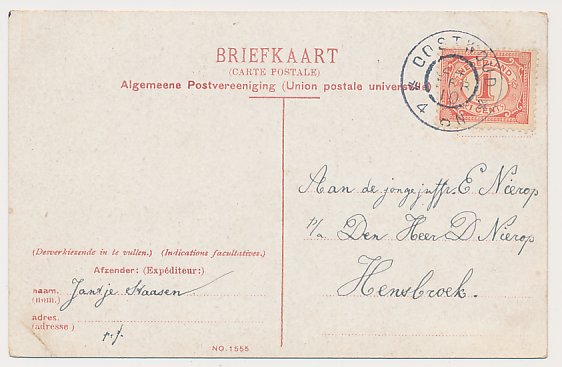 BRIEFKAART
(CARTE POSTALE)
Algemeene Postvereeniging (Union postale universelle)
OOSTWOUD
1
Aan de jongejuffr. E Nierop
p/a Den Heer D Nierop
Hensbroek.
(Desverkiezende in te vullen.) (Indications facultatives.)
Afzender: (Expéditeur:)
naam. Jantje Haasen
(nom.)
adres.
(adresse)
p.f.
NO. 1555